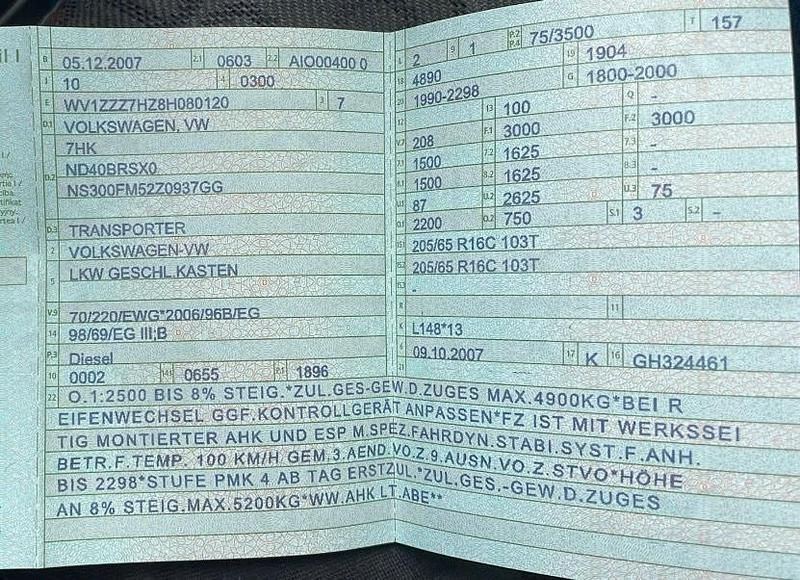 B 05.12.2007 2.1 0603 2.2 AIO00400 0
J 10 4 0300
E WV1ZZZ7HZ8H080120 3 7
D.1 VOLKSWAGEN, VW
7HK
D.2 ND40BRSX0
NS300FM52Z0937GG
D.3 TRANSPORTER
2 VOLKSWAGEN-VW
5 LKW GESCHL.KASTEN
V.9 70/220/EWG*2006/96B/EG
14 98/69/EG III;B
P.3 Diesel
10 0002 14.1 0655 P.1 1896
L 2 9 1 P.2 P.4 75/3500 T 157
18 4890 19 1904
20 1990-2298 G 1800-2000
12 13 100 Q -
V.7 208 F.1 3000 F.2 3000
7.1 1500 7.2 1625 7.3 -
8.1 1500 8.2 1625 8.3 -
U.1 87 U.2 2625 U.3 75
O.1 2200 O.2 750 S.1 3 S.2 -
15.1 205/65 R16C 103T
15.2 205/65 R16C 103T
15.3 -
R 11
K L148*13
6 09.10.2007 17 K 16 GH324461
21
22 O.1:2500 BIS 8% STEIG.*ZUL.GES-GEW.D.ZUGES MAX.4900KG*BEI R
EIFENWECHSEL GGF.KONTROLLGERÄT ANPASSEN*FZ IST MIT WERKSSEI
TIG MONTIERTER AHK UND ESP M.SPEZ.FAHRDYN.STABI.SYST.F.ANH.
BETR.F.TEMP. 100 KM/H GEM.3.AEND.VO.Z.9.AUSN.VO.Z.STVO*HÖHE
BIS 2298*STUFE PMK 4 AB TAG ERSTZUL.*ZUL.GES.-GEW.D.ZUGES
AN 8% STEIG.MAX.5200KG*WW.AHK LT.ABE**